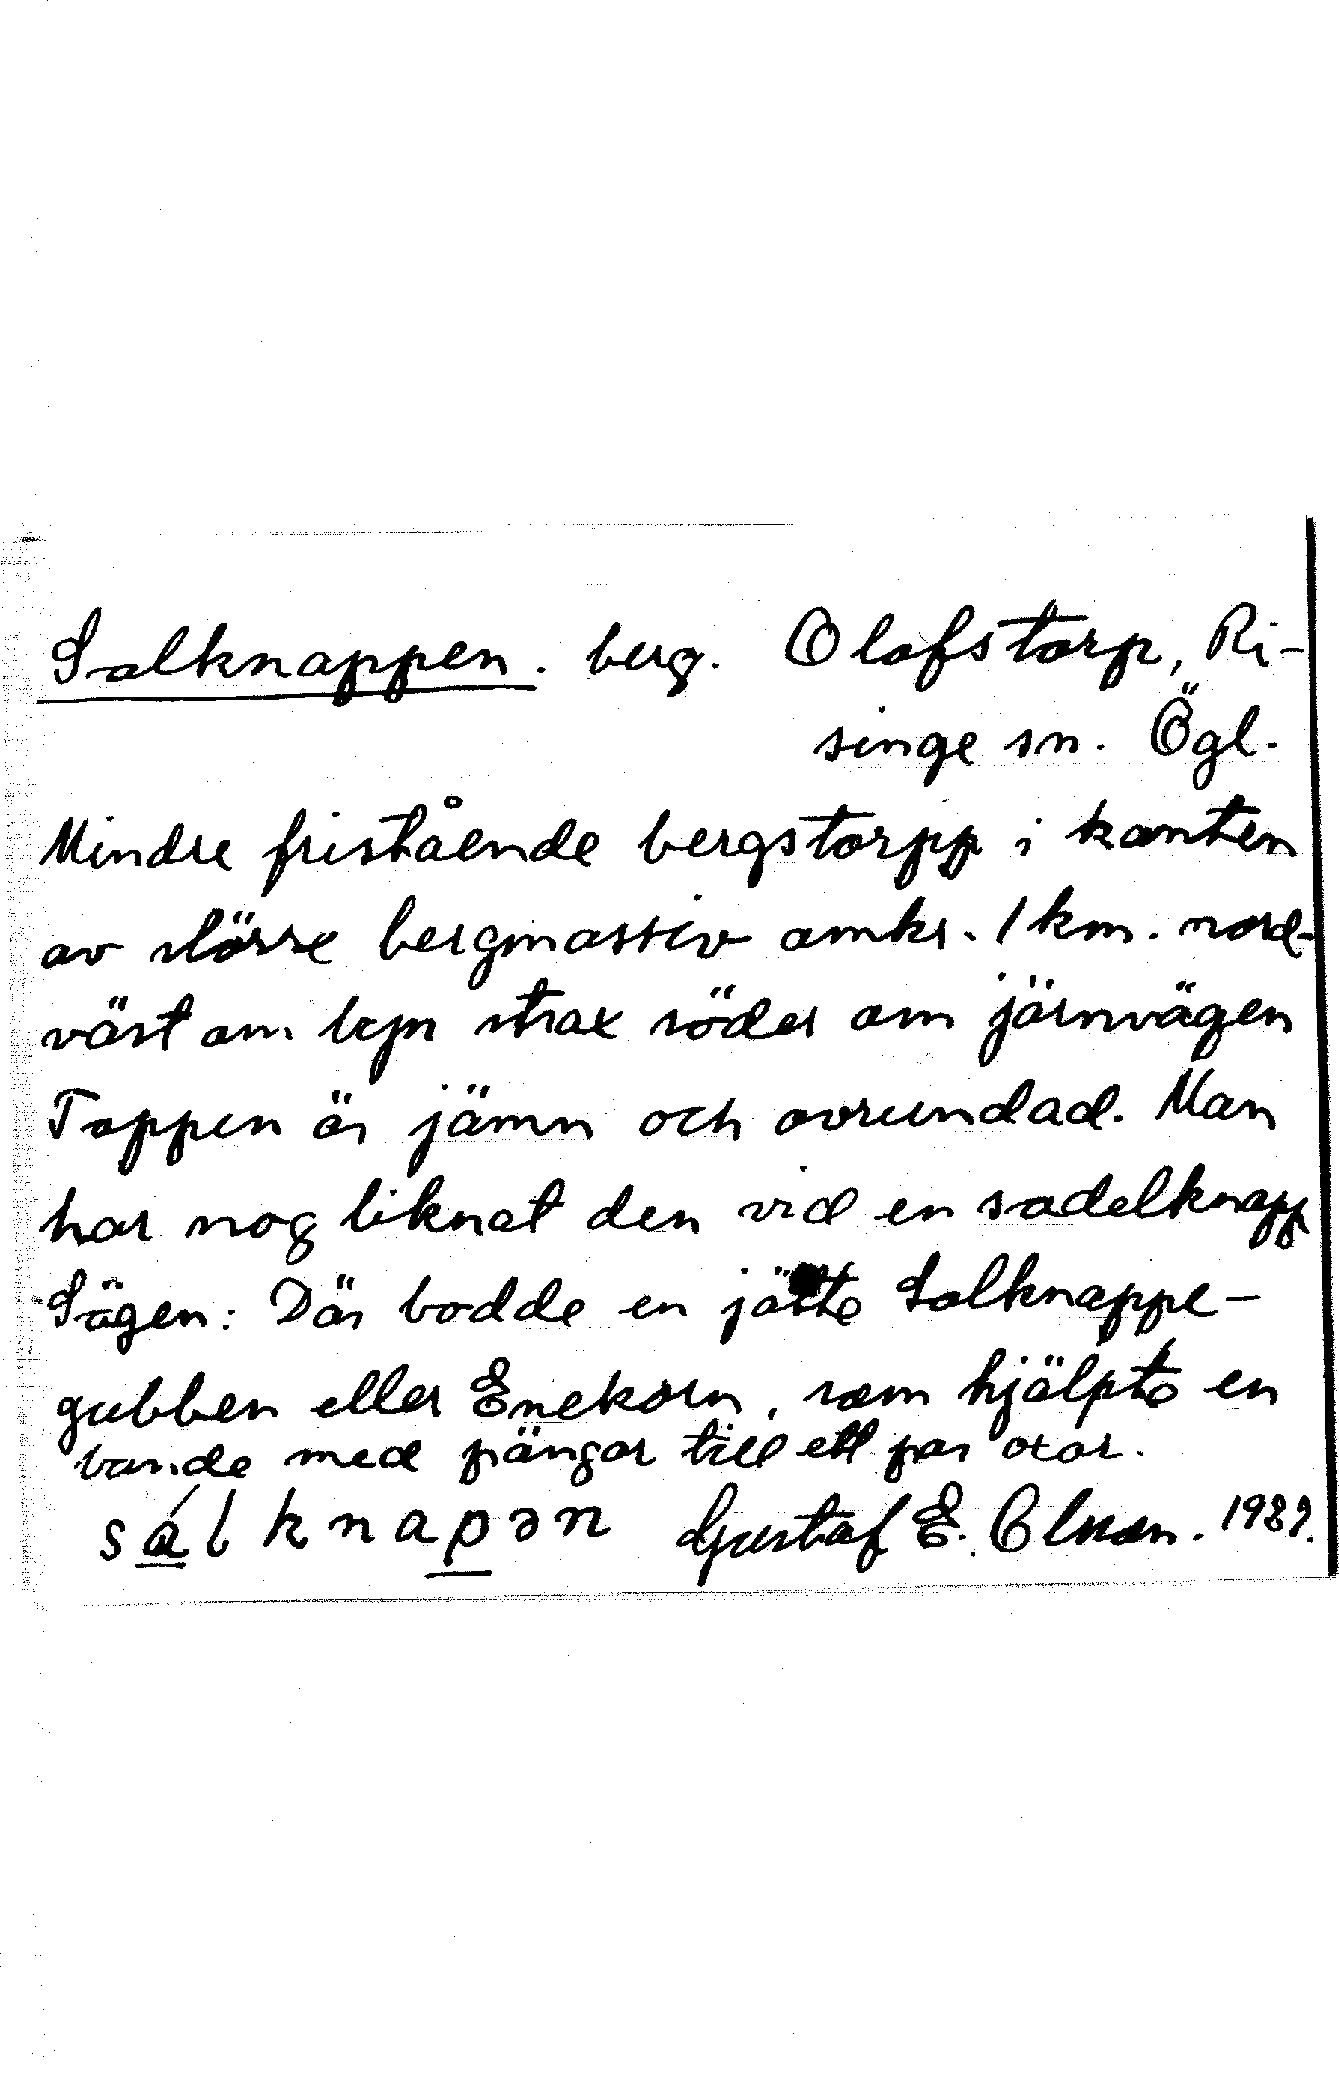 Salknappen. berg. Olofstorp, Ri-
singe sn. Ögl.
Mindre fristående bergstopp i kanten
av större bergmassiv omkr. 1 km. nord-
väst om byn strax söder om järnvägen
Toppen är jämn och avrundad. Man
har nog liknat den vid en sadelknapp
Sägen: Där bodde en jätte Salknappe-
gubben eller Enekorn, som hjälpte en
bonde med pängar till ett par oxar.
sálknapən Gustaf E. Olsson. 1989.